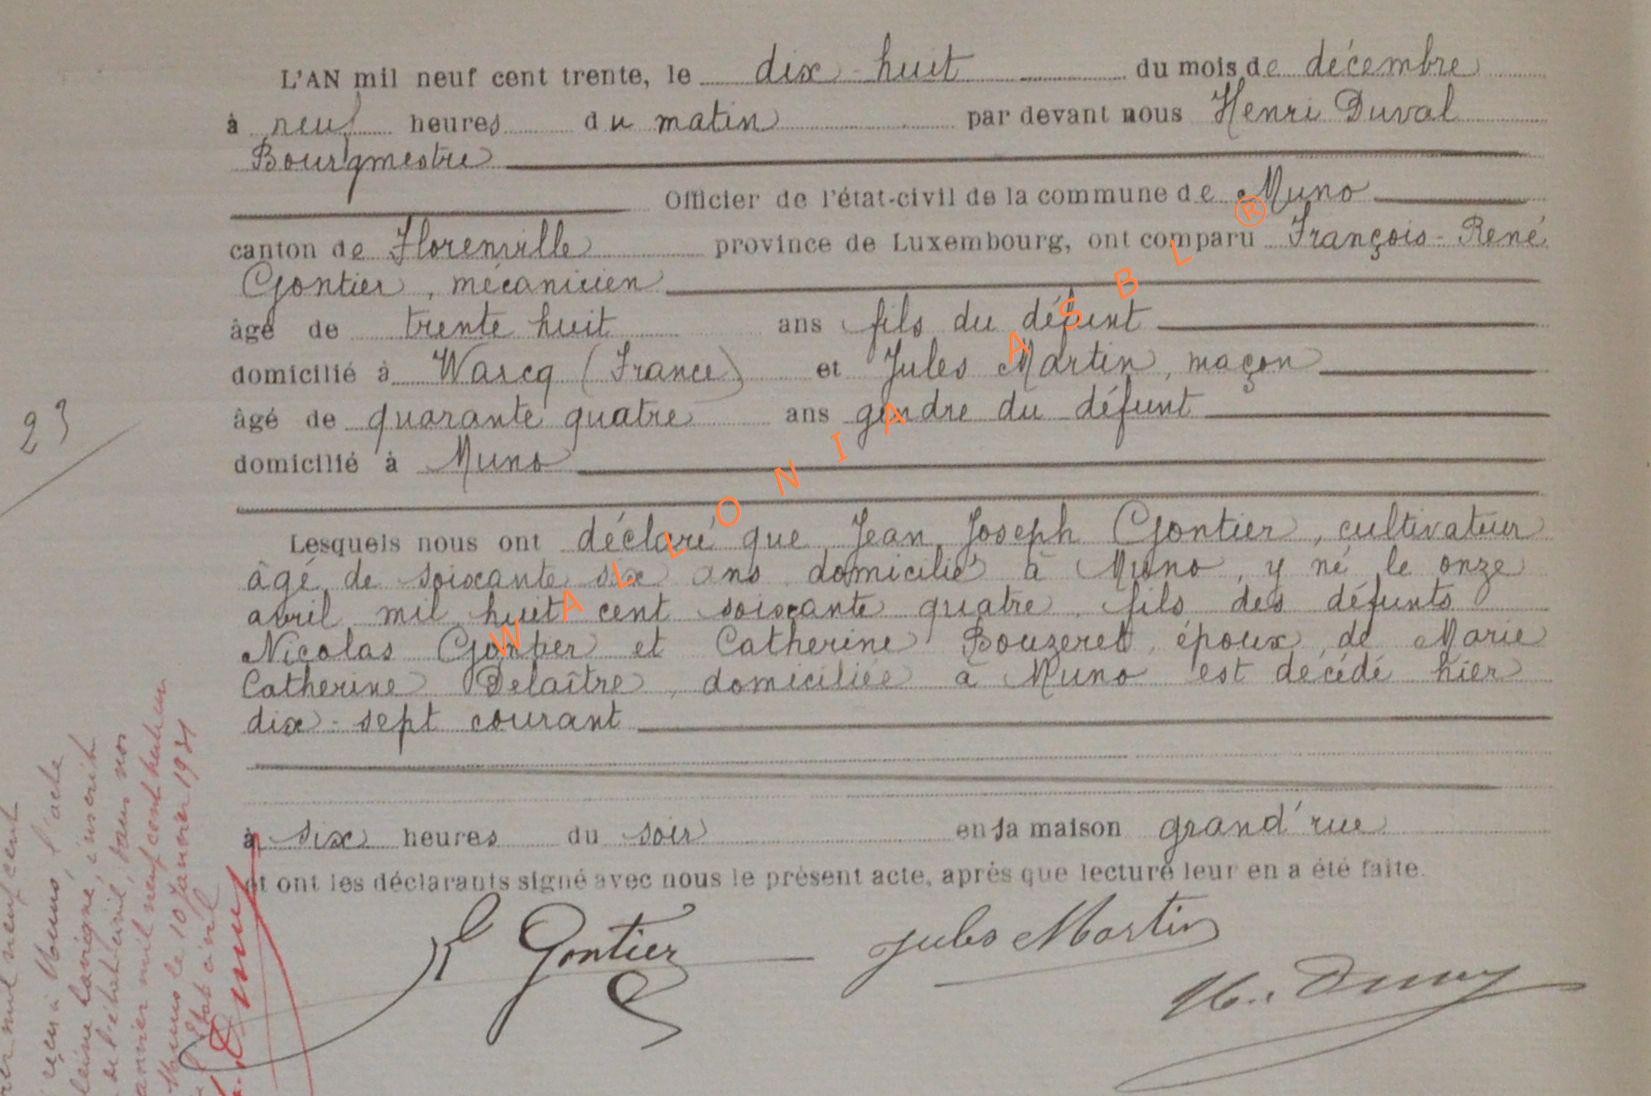 L'AN mil neuf cent trente, le dix-huit du mois de décembre
à neuf heures du matin par devant nous Henri Duval
Bourgmestre
Officier de l'état-civil de la commune de Muno
canton de Florenville province de Luxembourg, ont comparu François-René
Gontier, mécanicien
âgé de trente huit ans fils du défunt
domicilié à Warcq (France) et Jules Martin, maçon
âgé de quarante quatre ans gendre du défunt
domicilié à Muno
23
Lesquels nous ont déclaré que Jean Joseph Gontier, cultivateur
âgé de soixante six ans domicilié à Muno, y né le onze
avril mil huit cent soixante quatre, fils des défunts
Nicolas Gontier et Catherine Bouzeret, époux de Marie
Catherine Delaître, domiciliée à Muno est décédé hier
dix-sept courant
à six heures du soir en sa maison grand'rue
et ont les déclarants signé avec nous le présent acte, après que lecture leur en a été faite.
Gontier Jules Martin
H. Duval
WALLONIA ASBL ®
mil neuf cent
Muno, l'acte
inscrit
de l'état civil, dans nos
janvier mil neuf cent
Muno le 10 janvier 1931
l'état civil